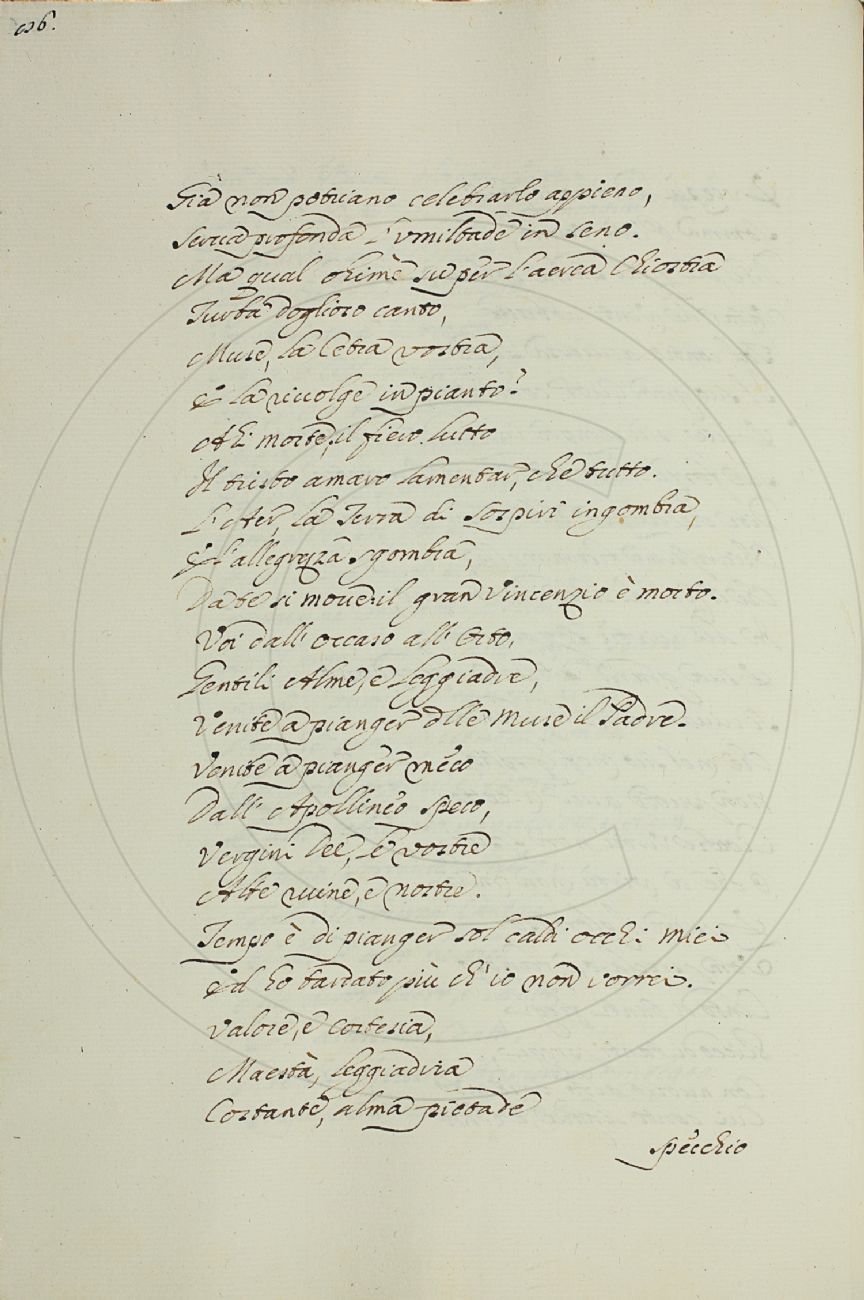 Già non potriano celebrarlo appieno,
Serva profonda l'umiltade in seno.
Ma qual ohimè su per l'aerea Chiostra
Turba doglioso canto,
Muse, la Cetra vostra,
E la rivolge in pianto?
Ahi morte, il fiero lutto
Il tristo amaro lamentar, che tutto.
L'Aer, la Terra di sospiri ingombra,
E l'allegrezza sgombra,
Da te si move: il gran Vincenzio è morto.
Voi dall'occaso all'Orto,
Gentili Alme, e leggiadre,
Venite a pianger dlle Muse il Padre.
Venite a pianger meco
Dall'Apollineo speco,
Vergini Dee, le vostre
Alte ruine, e nostre.
Tempo è di pianger sol caldi occhi miei
Ed ho tardato più ch'io non vorrei.
Valore, e Cortesia,
Maestà, leggiadria
Costante, alma pietade
specchio